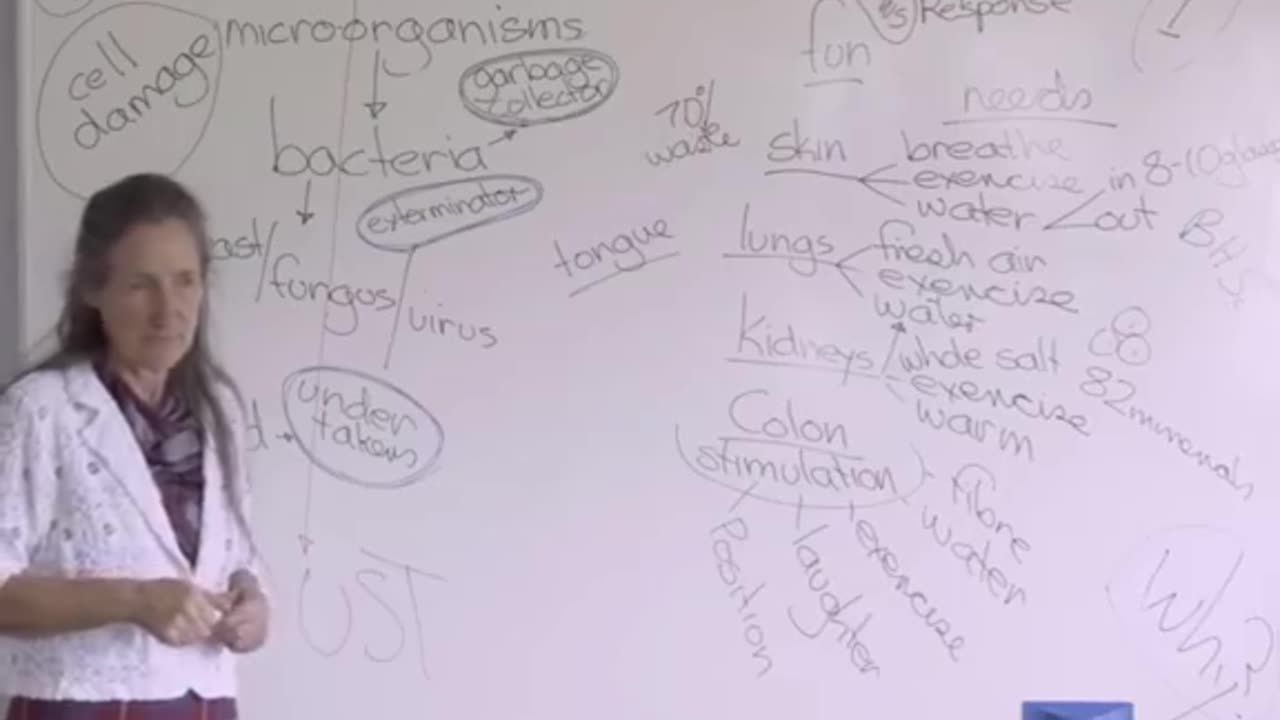 cell
damage
microorganisms
garbage
collector
bacteria
exterminator
ast/
fungus/virus
under
takers
UST
fun
Response
needs
70%
waste
skin
breathe
exercize
in 8-10 glass
water
out
tongue
lungs
fresh air
exercize
water
kidneys
whole salt
82 minerals
exercize
warm
Colon
stimulation
Fibre
water
Position
laughter
exercize
Why?